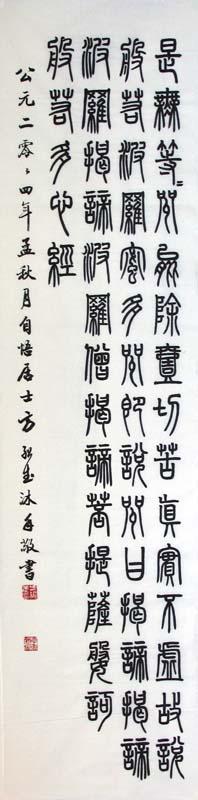 是無等等咒能除壹切苦真實不虛故說
般若波羅蜜多咒即說咒曰揭諦揭諦
波羅揭諦波羅僧揭諦菩提薩婆訶
般若多心經
公元二零零四年孟秋月自悟居士方 沐手敬書